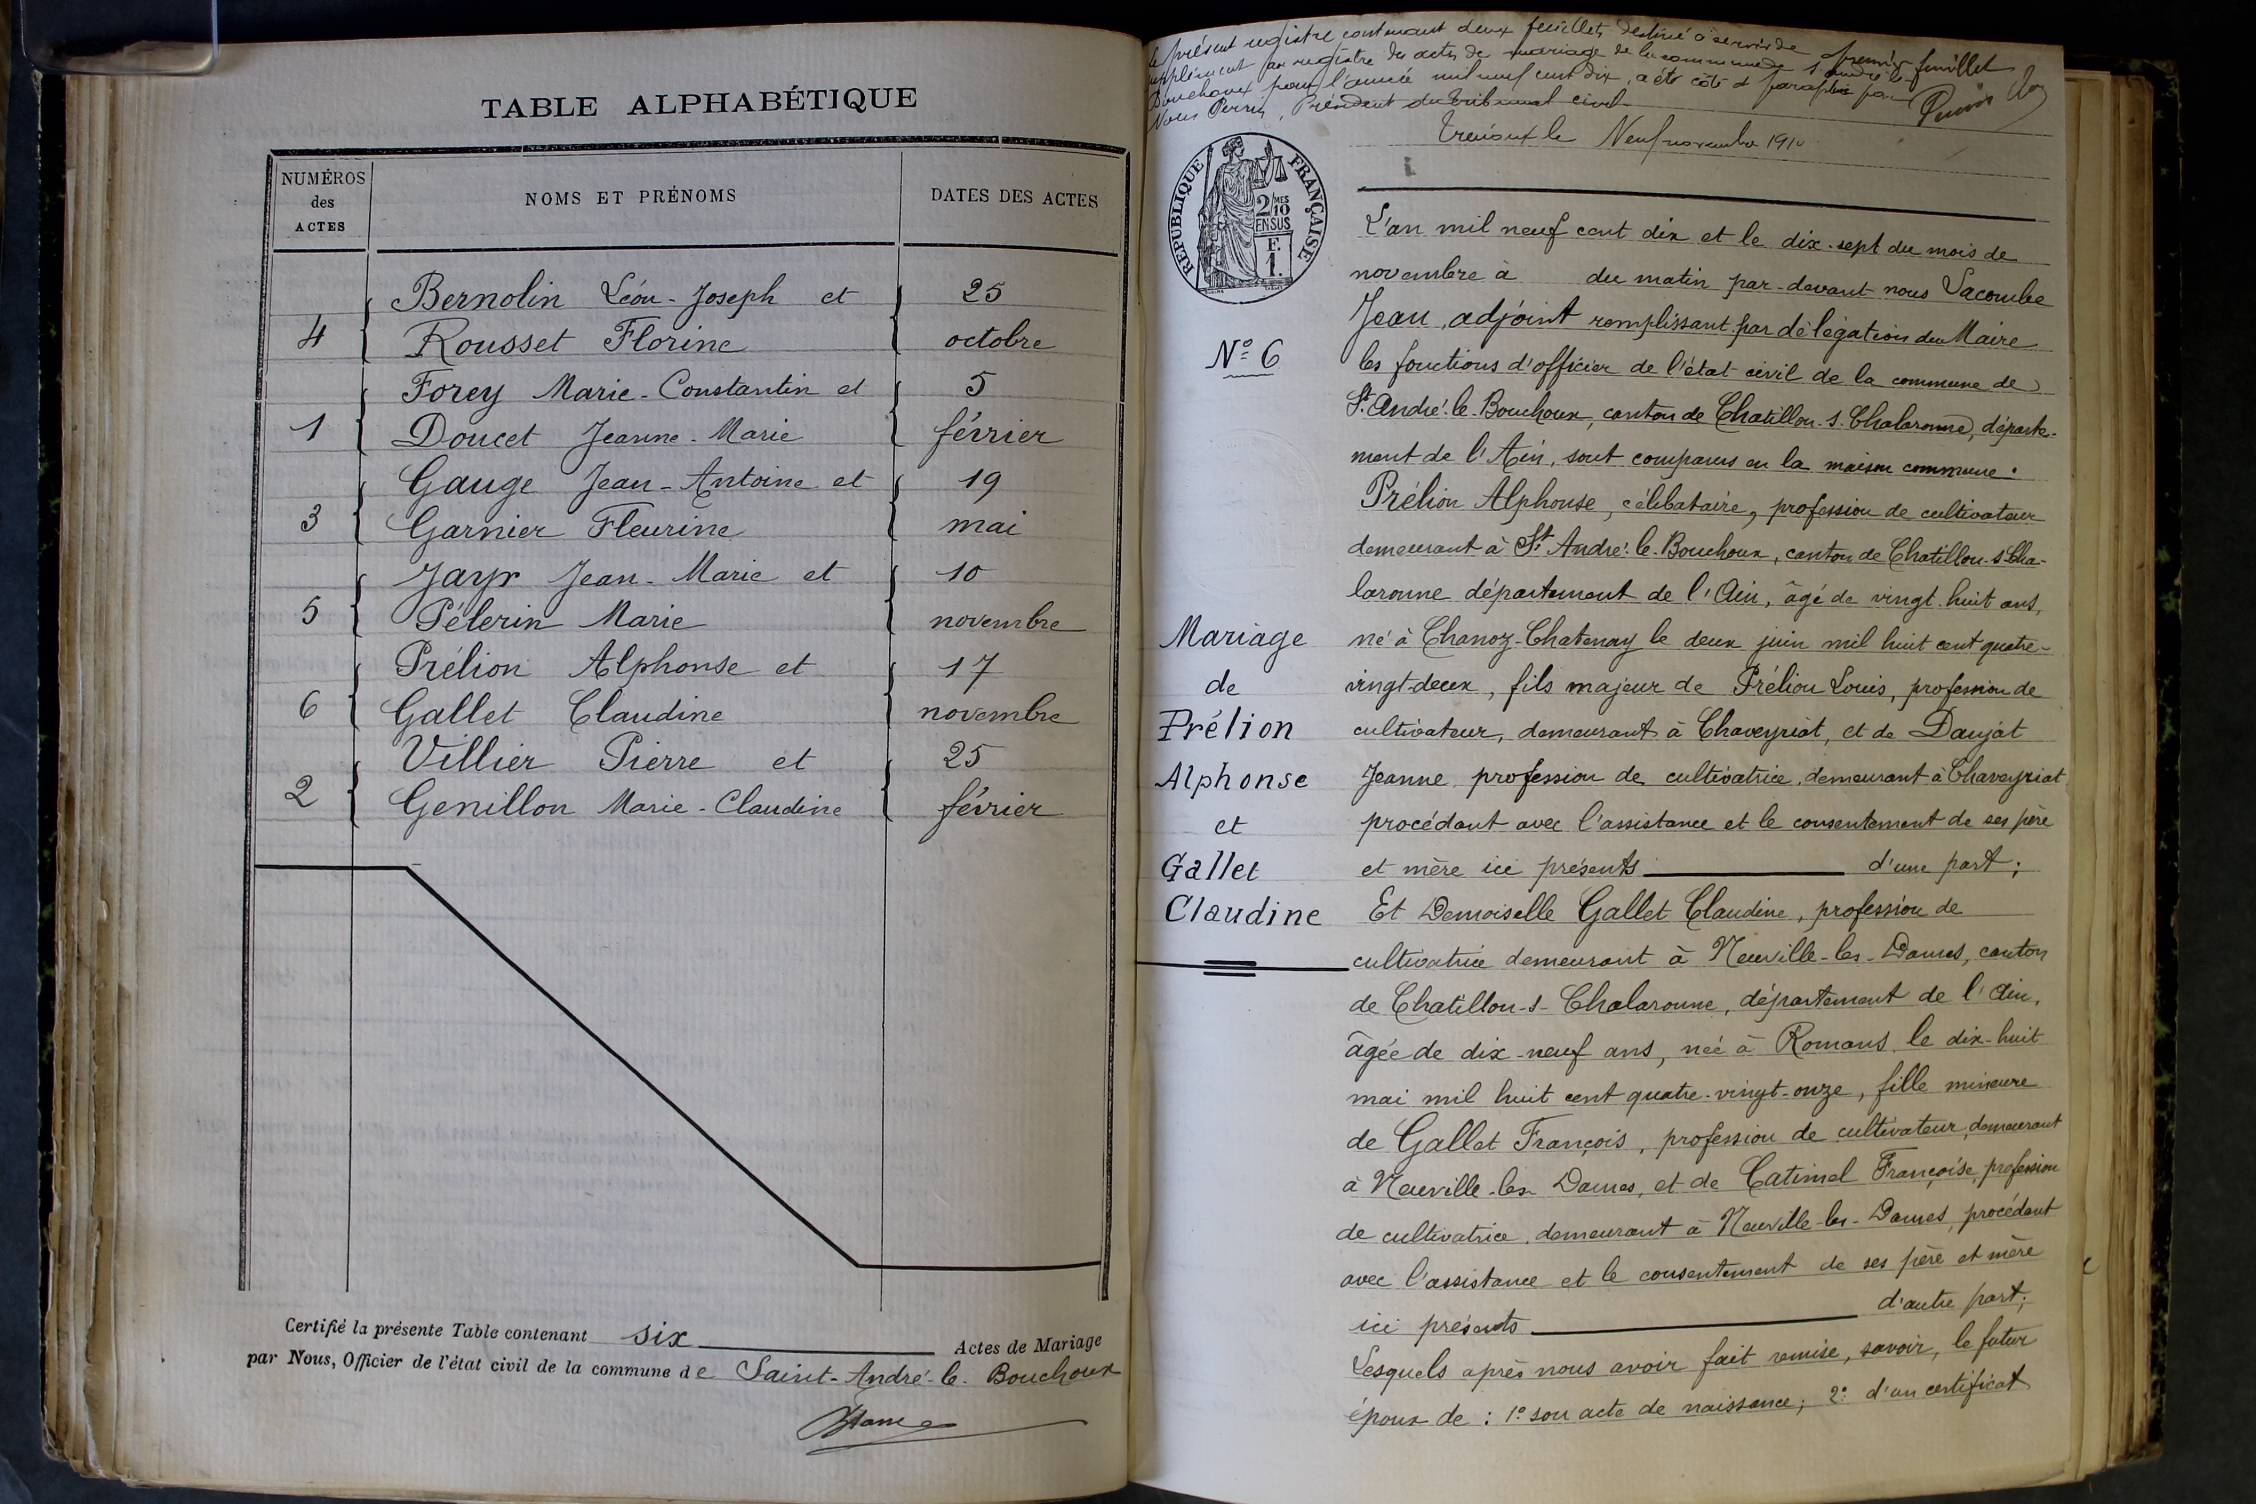 TABLE ALPHABÉTIQUE
NUMÉROS
des
ACTES
NOMS ET PRÉNOMS
DATES DES ACTES
Bernolin Léon-Joseph et 25
4 Rousset Florine octobre
Forey Marie-Constantin et 5
1 Doucet Jeanne-Marie février
Gauge Jean-Antoine et 19
3 Garnier Fleurine mai
Jayr Jean-Marie et 10
5 Pélerin Marie novembre
Prélion Alphonse et 17
6 Gallet Claudine novembre
Villier Pierre et 25
2 Genillon Marie-Claudine février
Certifié la présente Table contenant six Actes de Mariage
par Nous, Officier de l'état civil de la commune de Saint-André-le-Bouchoux
Le présent registre contenant deux feuillets destiné à servir de
supplément au registre des actes de mariage de la commune de St André le
Bouchoux pour l'année mil neuf cent dix, a été côté et paraphé par
Nous Perrin, Président du tribunal civil
premier feuillet
Trévoux le Neuf novembre 1910
RÉPUBLIQUE FRANÇAISE
2/10 MES
EN SUS
F.
1.
N° 6
Mariage
de
Prélion
Alphonse
et
Gallet
Claudine
L'an mil neuf cent dix et le dix-sept du mois de
novembre à du matin par-devant nous Lacombe
Jean, adjoint remplissant par délégation du Maire
les fonctions d'officier de l'état civil de la commune de
St. André-le-Bouchoux, canton de Chatillon-s-Chalaronne, départe-
ment de l'Ain, sont comparus en la maison commune.
Prélion Alphonse, célibataire, profession de cultivateur
demeurant à St. André-le-Bouchoux, canton de Chatillon-s-Cha-
laronne département de l'Ain, âgé de vingt-huit ans,
né à Chanoz-Chatenay le deux juin mil huit cent quatre-
vingt-deux, fils majeur de Prélion Louis, profession de
cultivateur, demeurant à Chaveyriat, et de Danjat
Jeanne profession de cultivatrice, demeurant à Chaveyriat
procédant avec l'assistance et le consentement de ses père
et mère ici présents d'une part;
Et Demoiselle Gallet Claudine, profession de
cultivatrice demeurant à Neuville-les-Dames, canton
de Chatillon-s-Chalaronne, département de l'Ain,
âgée de dix-neuf ans, née à Romans le dix-huit
mai mil huit cent quatre-vingt-onze, fille mineure
de Gallet François, profession de cultivateur, demeurant
à Neuville-les-Dames, et de Catimel Françoise, profession
de cultivatrice, demeurant à Neuville-les-Dames, procédant
avec l'assistance et le consentement de ses père et mère
ici présents d'autre part;
Lesquels après nous avoir fait remise, savoir, le futur
époux de : 1° son acte de naissance; 2° d'un certificat